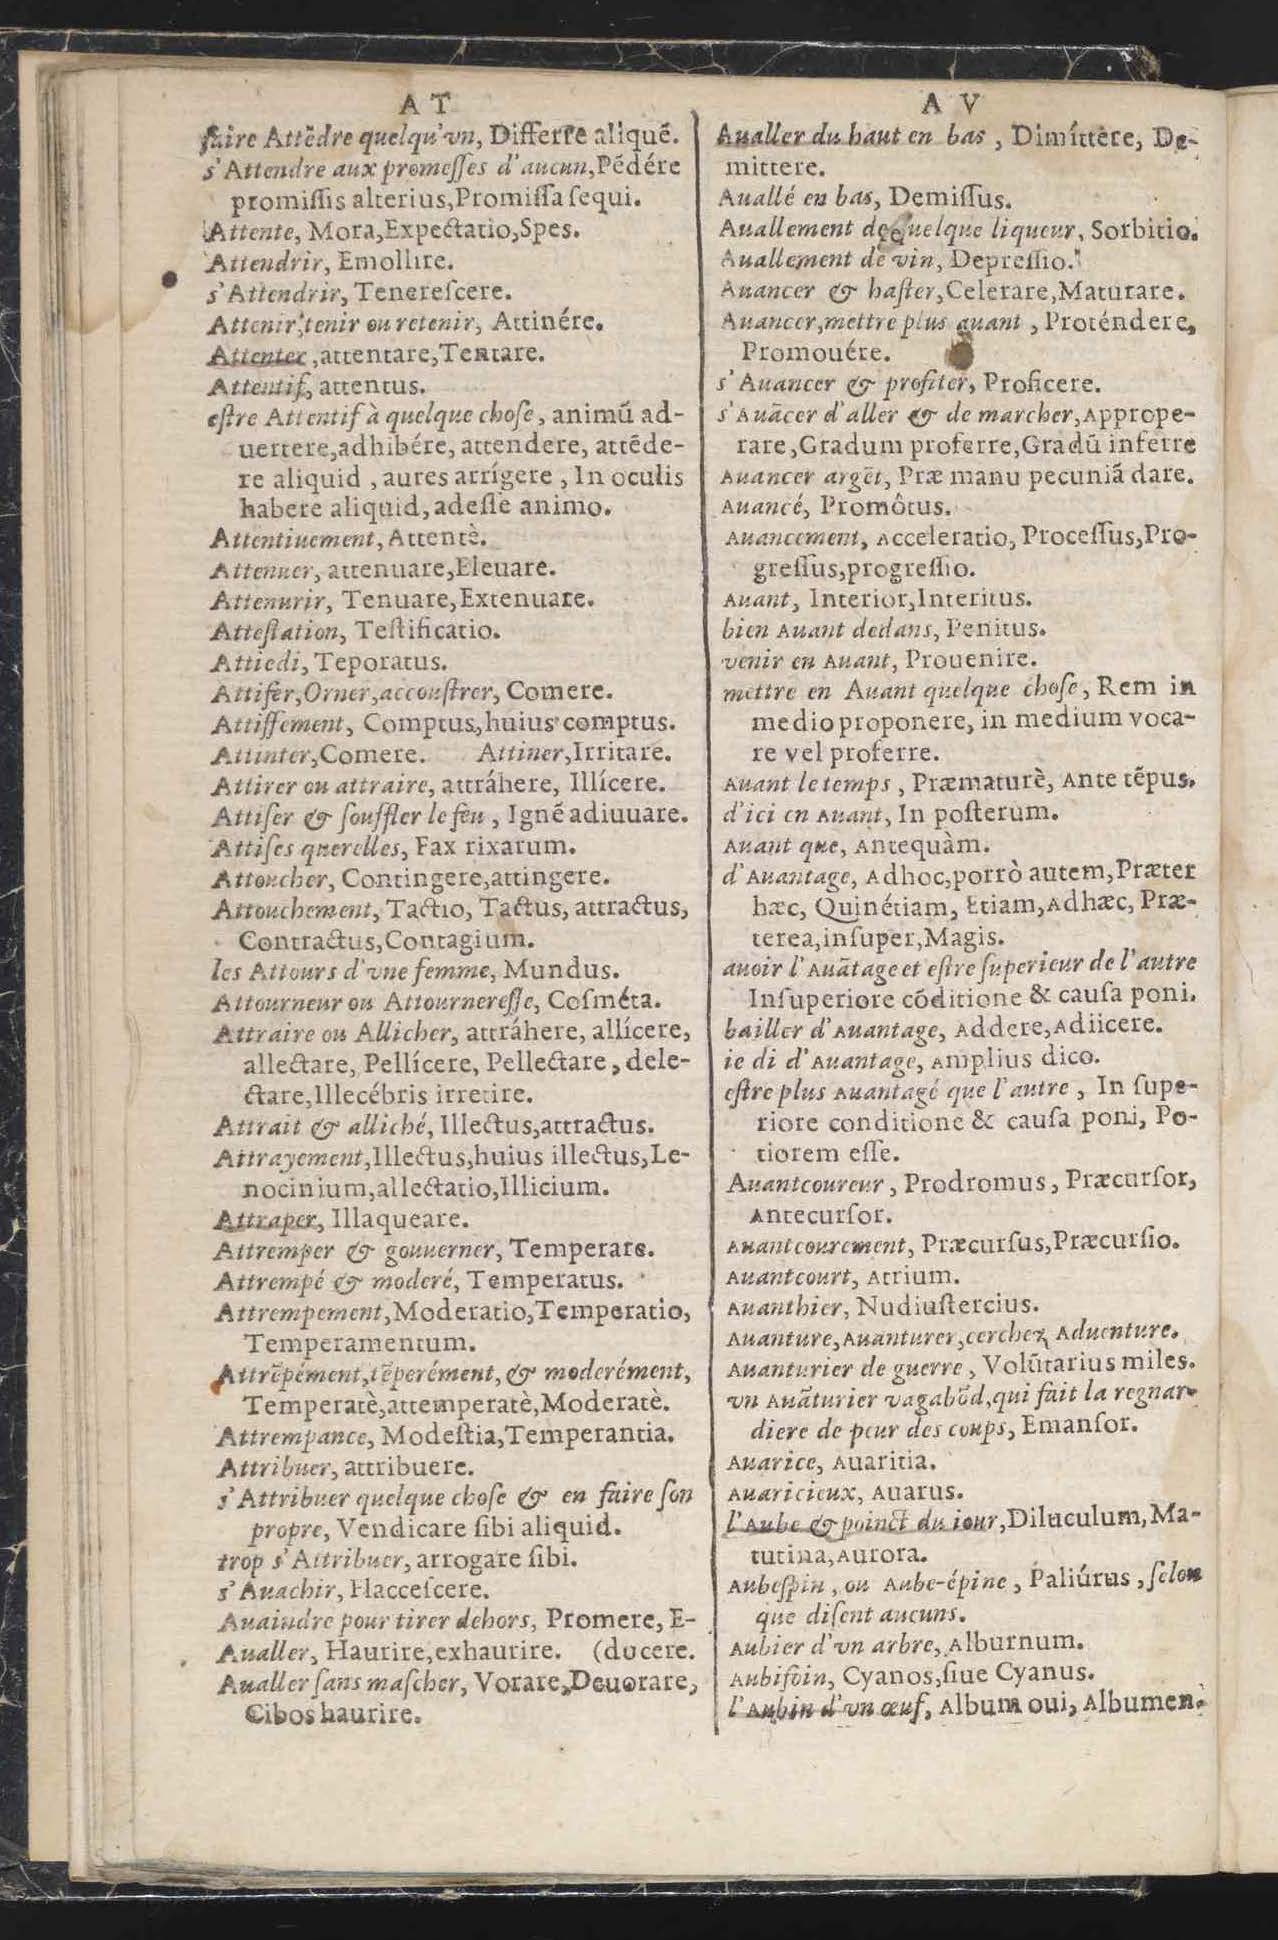 A T
faire Attēdre quelqu'vn, Differre aliquē.
s'Attendre aux promeſſes d'aucun, Pēdére
promiſſis alterius, Promiſſa ſequi.
Attente, Mora, Expectatio, Spes.
Attendrir, Emollire.
s'Attendrir, Tenereſcere.
Attenir, tenir ou retenir, Attinére.
Attenter, attentare, Tentare.
Attentif, attentus.
eſtre Attentif à quelque choſe, animū ad-
uertere, adhibére, attendere, attēde-
re aliquid, aures arrígere, In oculis
habere aliquid, adeſſe animo.
Attentiuement, Attentè.
Attenuer, attenuare, Eleuare.
Attenurir, Tenuare, Extenuare.
Atteſtation, Teſtificatio.
Attiedi, Teporatus.
Attifer, Orner, accouſtrer, Comere.
Attiffement, Comptus, huius comptus.
Attinter, Comere. Attiner, Irritare.
Attirer ou attraire, attráhere, Illícere.
Attiſer & ſouffler le feu, Ignē adiuuare.
Attiſes querelles, Fax rixarum.
Attoucher, Contingere, attingere.
Attouchement, Tactio, Tactus, attractus,
Contractus, Contagium.
les Attours d'vne femme, Mundus.
Attourneur ou Attournereſſe, Coſméta.
Attraire ou Allicher, attráhere, allícere,
allectare, Pellícere, Pellectare, dele-
ctare, Illecébris irretire.
Attrait & alliché, Illectus, attractus.
Attrayement, Illectus, huius illectus, Le-
nocinium, allectatio, Illicium.
Attraper, Illaqueare.
Attremper & gouuerner, Temperare.
Attrempé & moderé, Temperatus.
Attrempement, Moderatio, Temperatio,
Temperamentum.
Attrēpément, tēperément, & moderément,
Temperatè, attemperatè, Moderatè.
Attrempance, Modeſtia, Temperantia.
Attribuer, attribuere.
s'Attribuer quelque choſe & en faire ſon
propre, Vendicare ſibi aliquid.
trop s'Attribuer, arrogare ſibi.
s'Auachir, Flacceſcere.
Auaindre pour tirer dehors, Promere, E-
Aualler, Haurire, exhaurire. (ducere.
Aualler ſans maſcher, Vorare, Deuorare,
Cibos haurire.
A V
Aualler du haut en bas, Dimíttere, De-
mittere.
Auallé en bas, Demiſſus.
Auallement de quelque liqueur, Sorbitio.
Auallement de vin, Depreſſio.
Auancer & haſter, Celerare, Maturare.
Auancer, mettre plus auant, Proténdere,
Promouére.
s'Auancer & profiter, Proficere.
s'Auācer d'aller & de marcher, Apprope-
rare, Gradum proferre, Gradū inferre
Auancer argēt, Præ manu pecuniā dare.
Auancé, Promôtus.
Auancement, Acceleratio, Proceſſus, Pro-
greſſus, progreſſio.
Auant, Interior, Interitus.
bien Auant dedans, Penitus.
venir en Auant, Prouenire.
mettre en Auant quelque choſe, Rem in
medio proponere, in medium voca-
re vel proferre.
Auant le temps, Præmaturè, Ante tēpus.
d'ici en Auant, In poſterum.
Auant que, Antequàm.
d'Auantage, Adhoc, porrò autem, Præter
hæc, Quinétiam, Etiam, Adhæc, Præ-
terea, inſuper, Magis.
auoir l'Auātage et eſtre ſuperieur de l'autre
Inſuperiore cōditione & cauſa poni.
bailler d'Auantage, Addere, Adiicere.
ie di d'Auantage, Amplius dico.
eſtre plus Auantagé que l'autre, In ſupe-
riore conditione & cauſa poni, Po-
tiorem eſſe.
Auantcoureur, Prodromus, Præcurſor,
Antecurſor.
Auantcourement, Præcurſus, Præcurſio.
Auantcourt, Atrium.
Auanthier, Nudiuſtercius.
Auanture, Auanturer, cerchez Aduenture.
Auanturier de guerre, Volūtarius miles.
vn Auāturier vagabōd, qui fait la regnar-
diere de peur des coups, Emanſor.
Auarice, Auaritia.
Auaricieux, Auarus.
l'Aube & poinct du iour, Diluculum, Ma-
tutina, Aurora.
Aubeſpin, ou Aube-épine, Paliúrus, ſelon
que diſent aucuns.
Aubier d'vn arbre, Alburnum.
Aubifoin, Cyanos, ſiue Cyanus.
l'Aubin d'vn œuf, Album oui, Albumen.